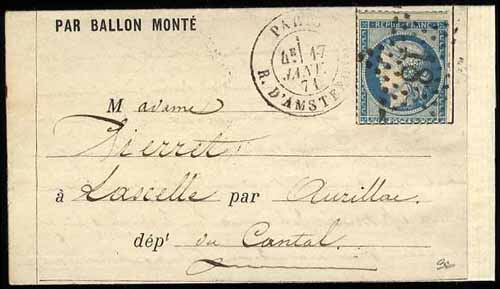 PAR BALLON MONTÉ
PARIS
1
4E 17
JANV.
71
R. D'AMSTERDAM
REPUB. FRANC.
Madame
Pierret
à Lascelle par Aurillac
dépt du Cantal